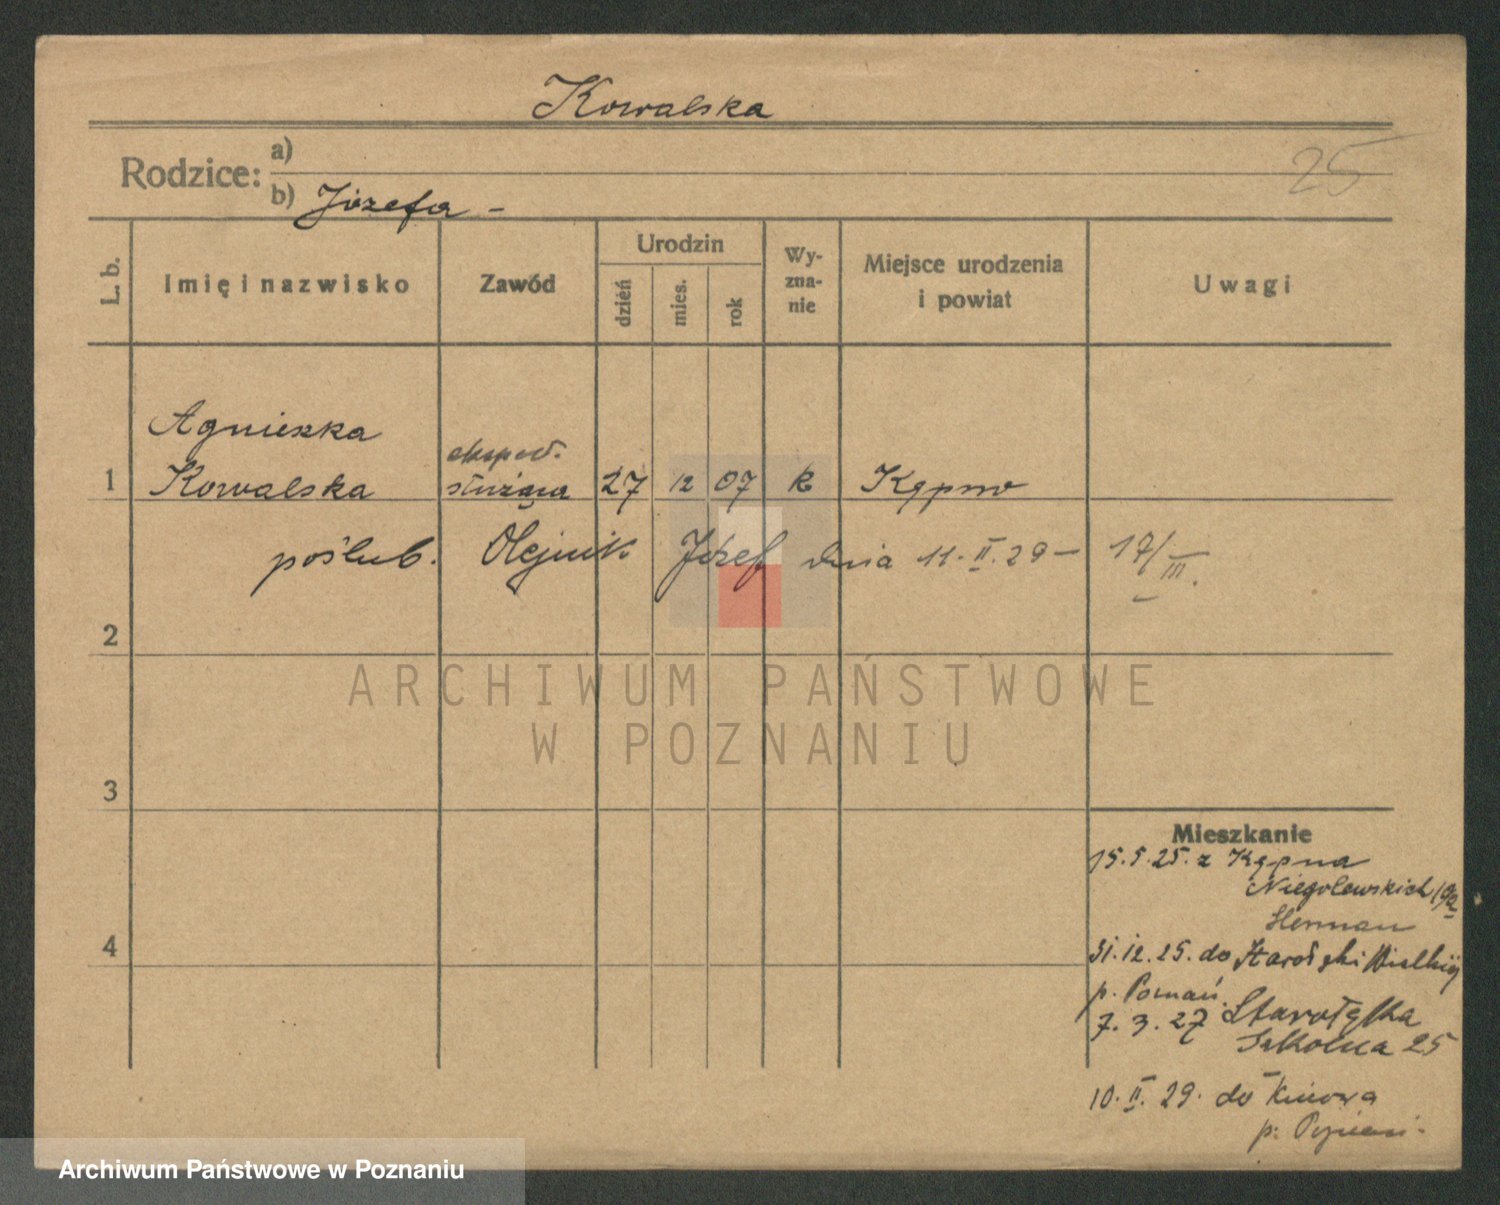 Kowalska
Rodzice: a)
25
b) Józefa -
L. b.
Imię i nazwisko
Zawód
Urodzin
dzień
mies.
rok
Wy-
zna-
nie
Miejsce urodzenia
i powiat
Uwagi
Agnieszka
1 Kowalska
eksped.
służąca
27 12 07 k Kępno
poślub. Olejnik Józef dnia 11. II. 29 - 17/III.
2
3
4
Mieszkanie
15.5.25. z Kępna
Niegolewskich 19a
Herman
31.12.25. do
p. Poznań
7.3.27 Starołęcka
Szkolna 25
10. II. 29. do
p.
ARCHIWUM PAŃSTWOWE
W POZNANIU
Archiwum Państwowe w Poznaniu